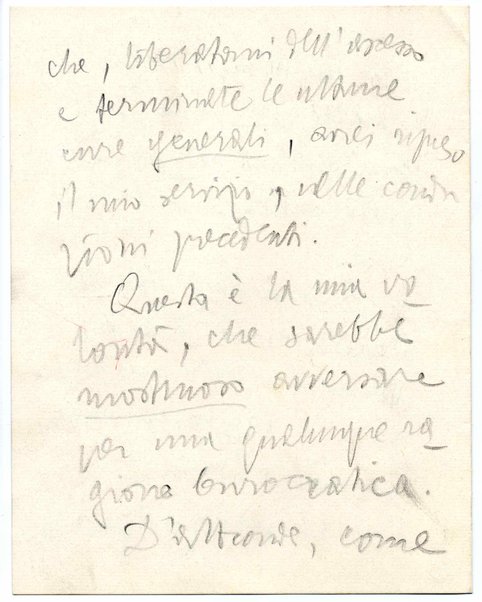 che, liberatomi dell'ascesso
e terminate le ultime
cure generali, avrei ripreso
il mio servizio, nelle condi
zioni precedenti.
Questa è la mia vo-
lontà, che sarebbe
mostruoso avversare
per una qualunque ra-
gione burocratica.
D'altronde, come